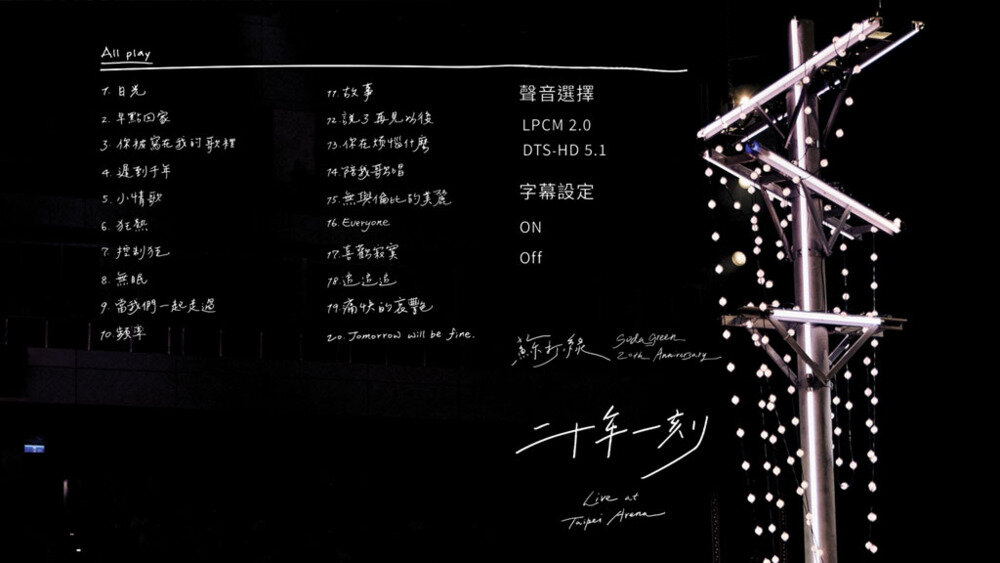 All play
1. 日光
2. 早點回家
3. 你被寫在我的歌裡
4. 遲到千年
5. 小情歌
6. 狂熱
7. 控制狂
8. 無眠
9. 當我們一起走過
10. 頻率
11. 故事
12. 說了再見以後
13. 你在煩惱什麼
14. 陪我歌唱
15. 無與倫比的美麗
16. Everyone
17. 喜歡寂寞
18. 追追追
19. 痛快的哀艷
20. Tomorrow will be fine.
聲音選擇
LPCM 2.0
DTS-HD 5.1
字幕設定
ON
Off
蘇打綠
Soda green
20th Anniversary
二十年一刻
Live at
Taipei Arena